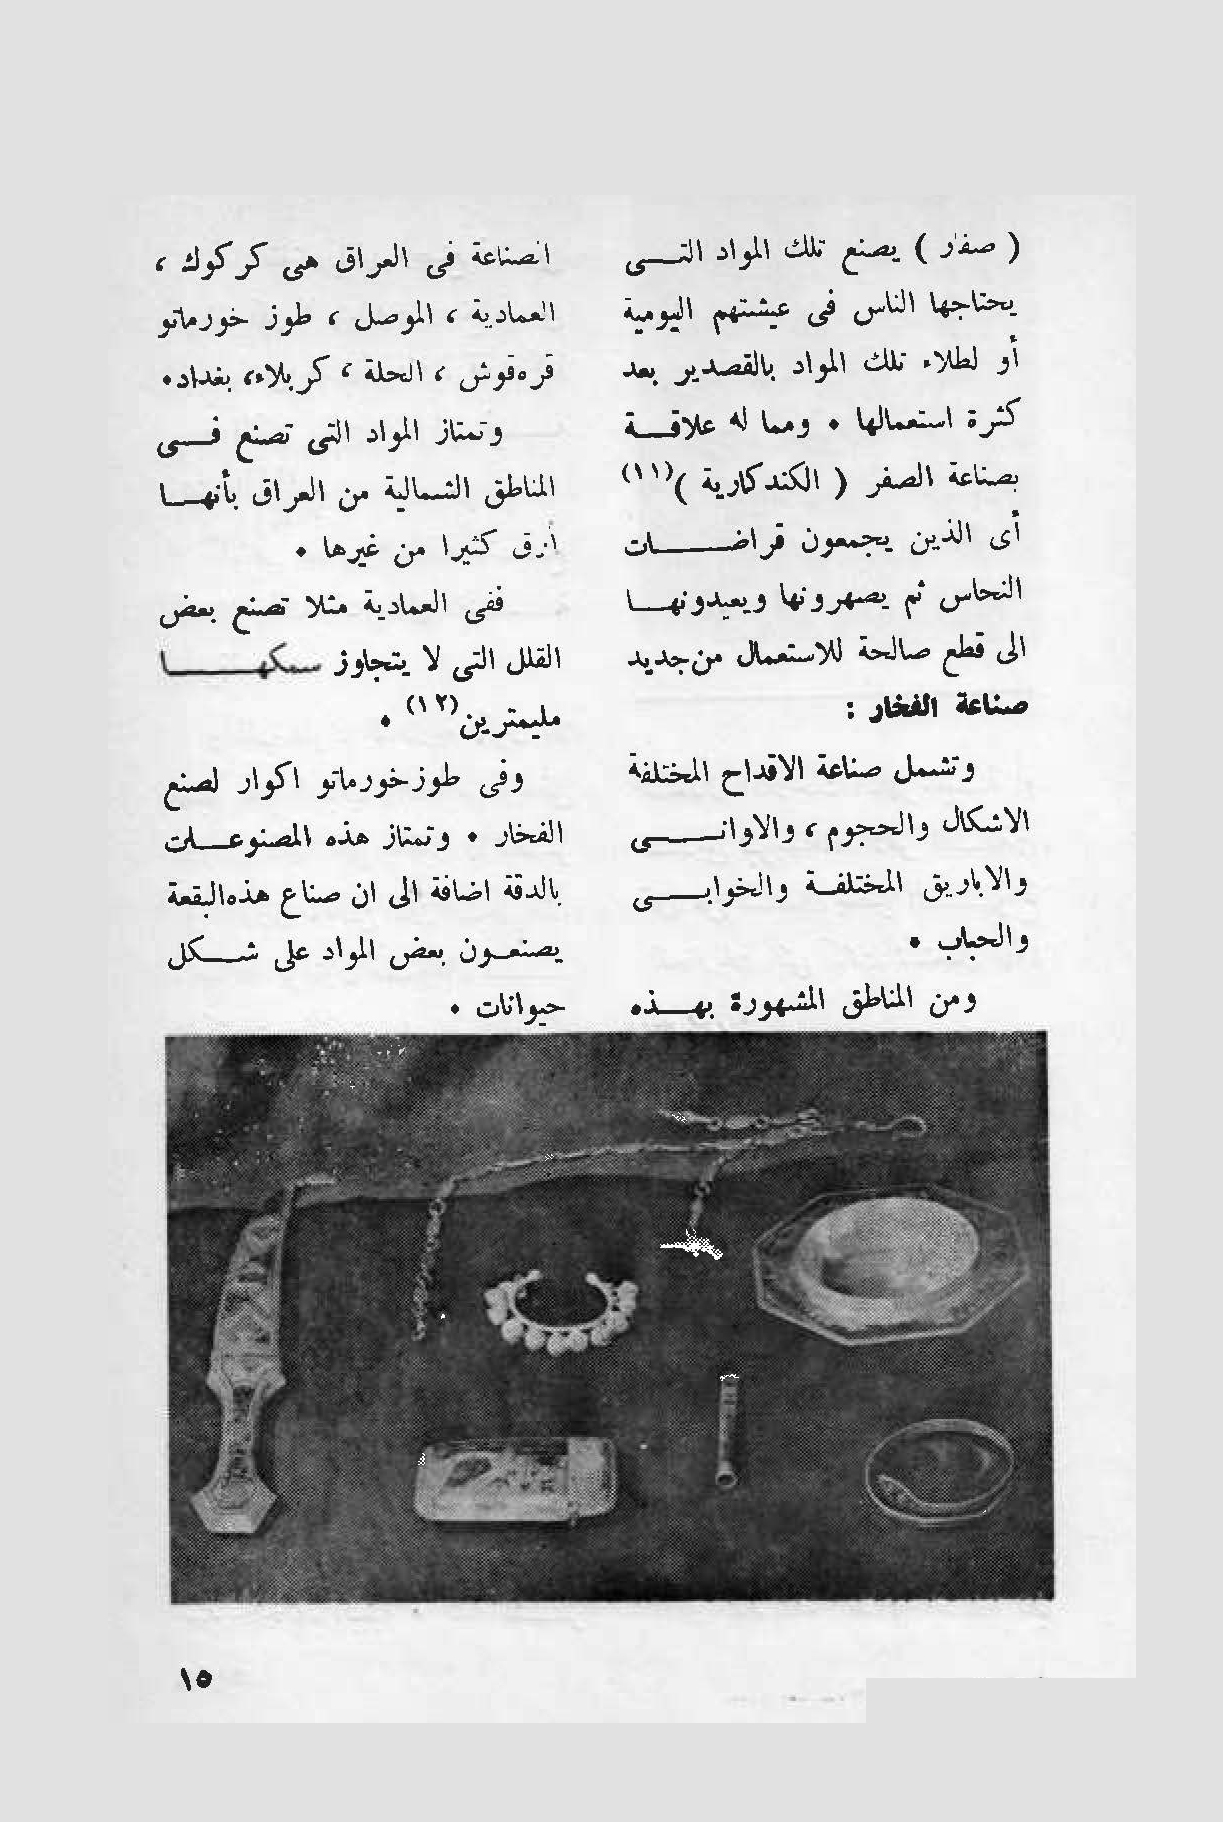 ( صفار ) يصنع تلك المواد التـــى
يحتاجها الناس فى عيشتهم اليومية
أو لطلاء تلك المواد بالقصدير بعد
كثرة استعمالها • ومما له علاقـــة
بصناعة الصفر ( الكندكارية )(١١)
أى الذين يجمعون قراضـــــات
النحاس ثم يصهرونها ويعيدونهـــا
الى قطع صالحة للاستعمال من جديد
صناعة الفخار :
وتشمل صناعة الاقداح المختلفة
الاشكال والحجوم ، والاوانـــــى
والاباريق المختلفـة والخوابـــــى
والحباب •
ومن المناطق المشهورة بهـــذه
الصناعة فى العراق هى كركوك ،
العمادية ، الموصل ، طوز خورماتو
قره‌قوش ، الحلة ، كربلاء، بغداد•
وتمتاز المواد التى تصنع فـــى
المناطق الشمالية من العراق بأنهـــا
أرق كثيرا من غيرها •
ففى العمادية مثلا تصنع بعض
القلل التى لا يتجاوز سمكهـــــا
مليمترين(١٢) •
وفى طوزخورماتو اكوار لصنع
الفخار • وتمتاز هذه المصنوعـــات
بالدقة اضافة الى ان صناع هذه البقعة
يصنعـون بعض المواد على شـــكل
حيوانات •
١٥